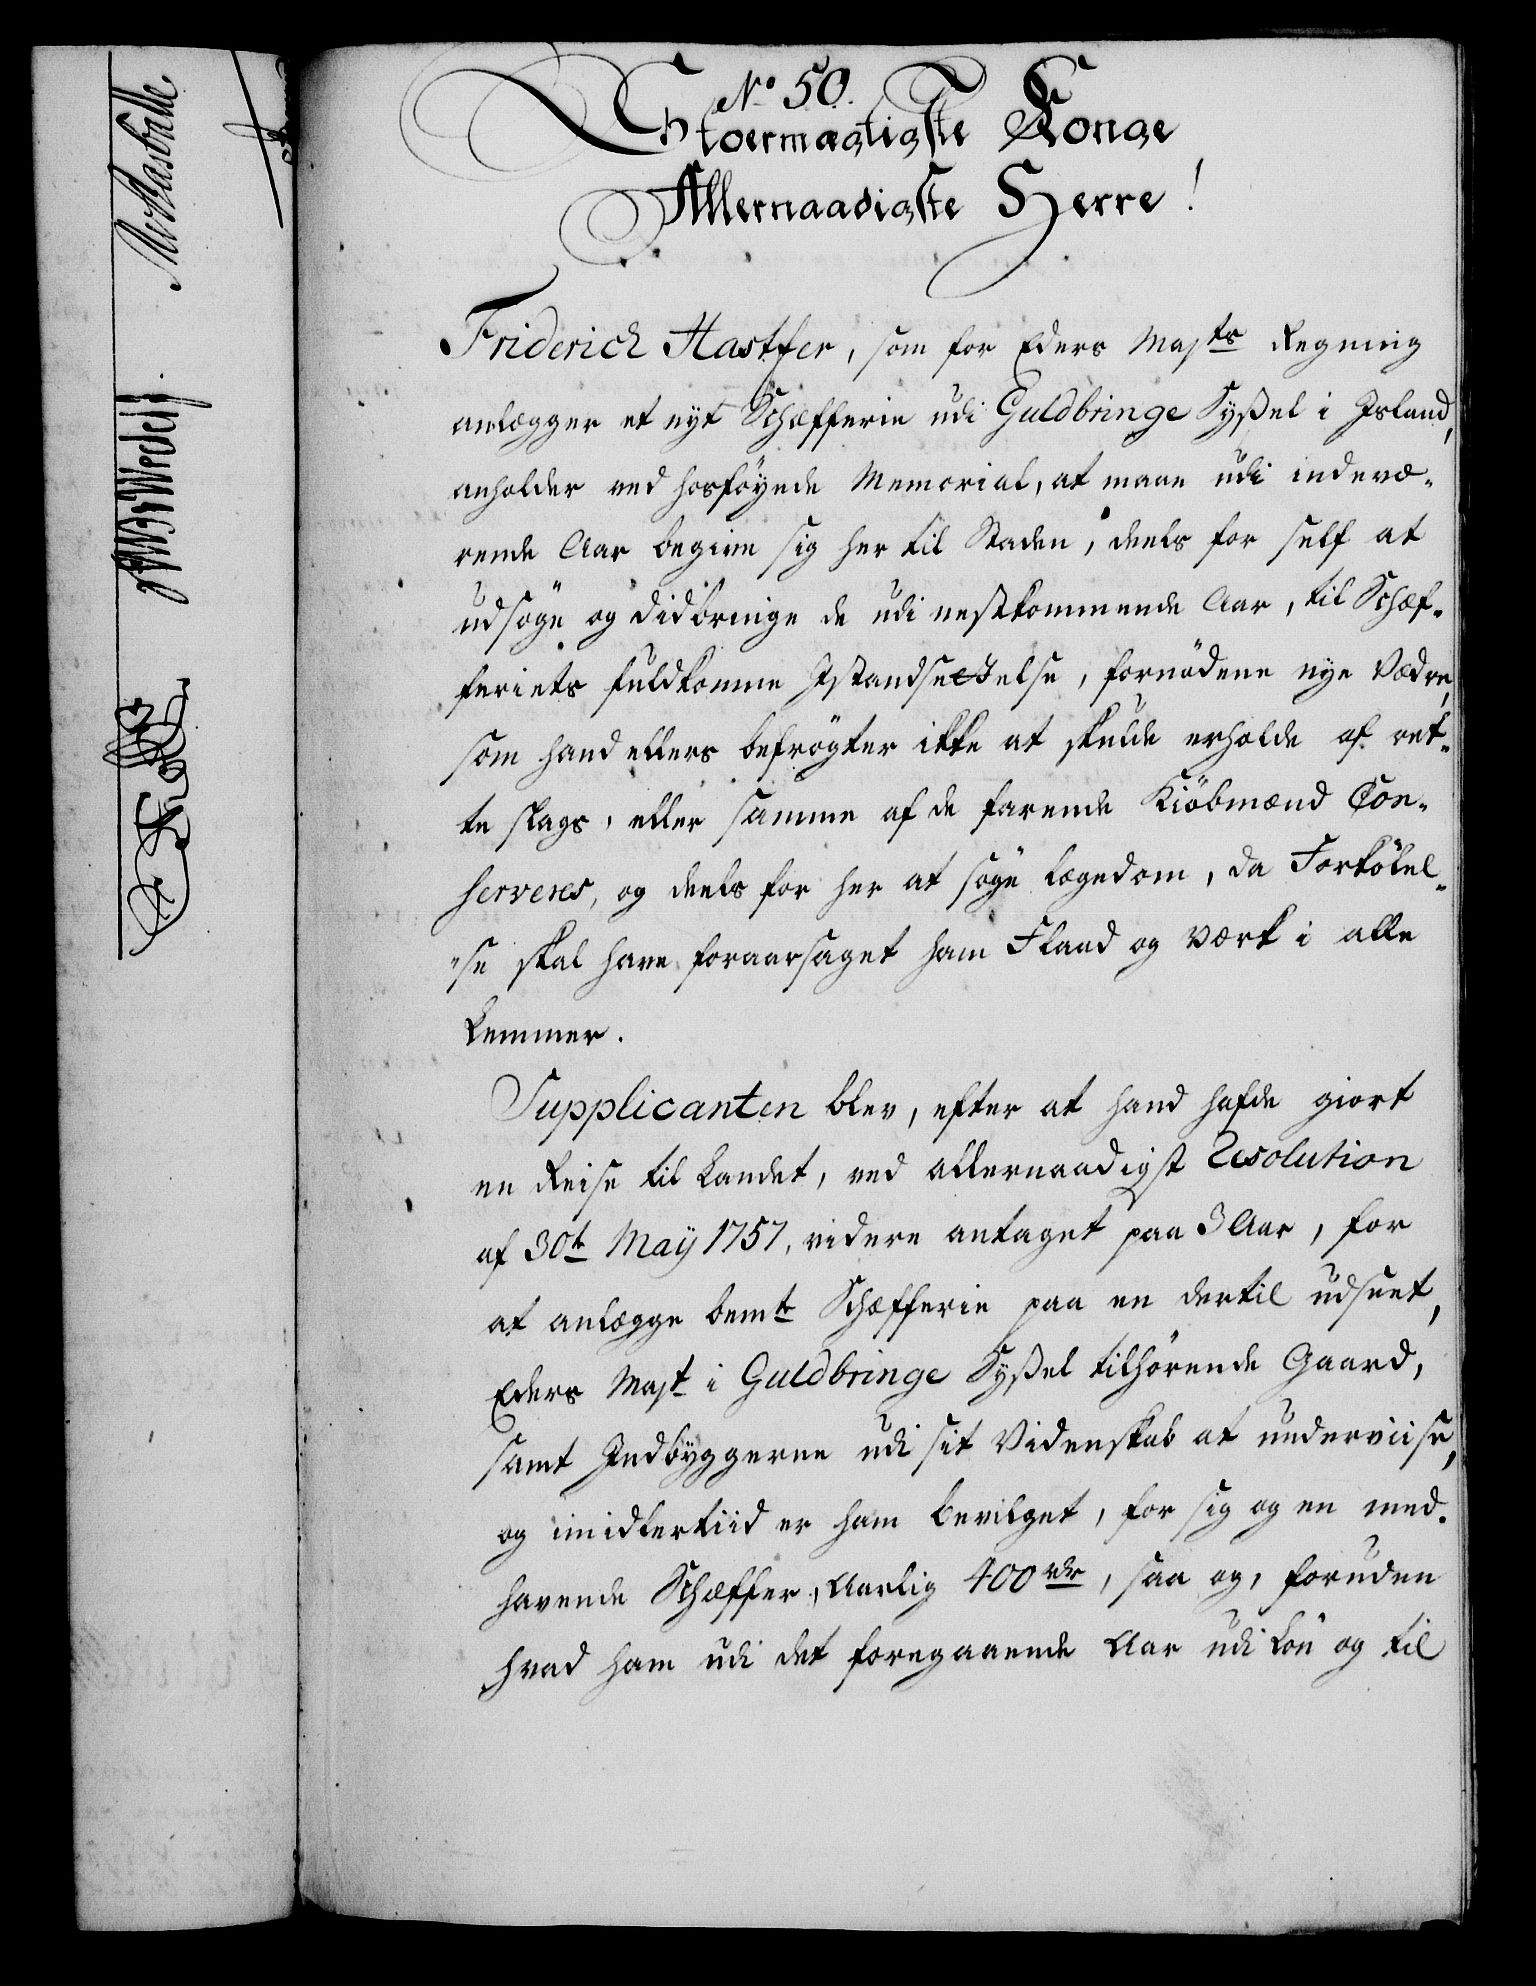 No 50.
Stoermægtigste Konge
Allernaadigste Herre!
Friderich Hastfer, som for Eders Majts Regning
anlægger et nyt Schæfferie udi Guldbringe Syßel i Jsland,
anholder ved hosföyede Memorial, at maae udi indevæ-
rende Aar begive sig her til Staden, deels for self at
udsöge og didbringe de udi nestkommende Aar, til Schæf-
feriets fuldkomne Jstandsettelse, fornödene nye Vædre,
som hand ellers befrögter ikke at skulde erholde af ret-
te slags, eller samme af de farende Kiöbmænd Con-
serveres, og deels for her at söge Lægedom, da Forkölel-
"se skal have foraarsaget ham Flaad og Værk i alle
Lemmer.
Supplicanten blev, efter at hand hafde giort
en Reise til Landet, ved allernaadigst Resolution
af 30t May 1757, videre antaget paa 3 Aar, for
at anlægge bemte Schæfferie paa en dertil udseet,
Eders Majt i Guldbringe Syßel tilhörende Gaard,
samt Jndbyggerne udi sit Videnskab at underviise,
og imidlertiid er ham bevilget, for sig og en med-
havende Schæffer, Aarlig 400 rdr, saa og, foruden
hvad ham udi det foregaaende Aar udi Lön og til